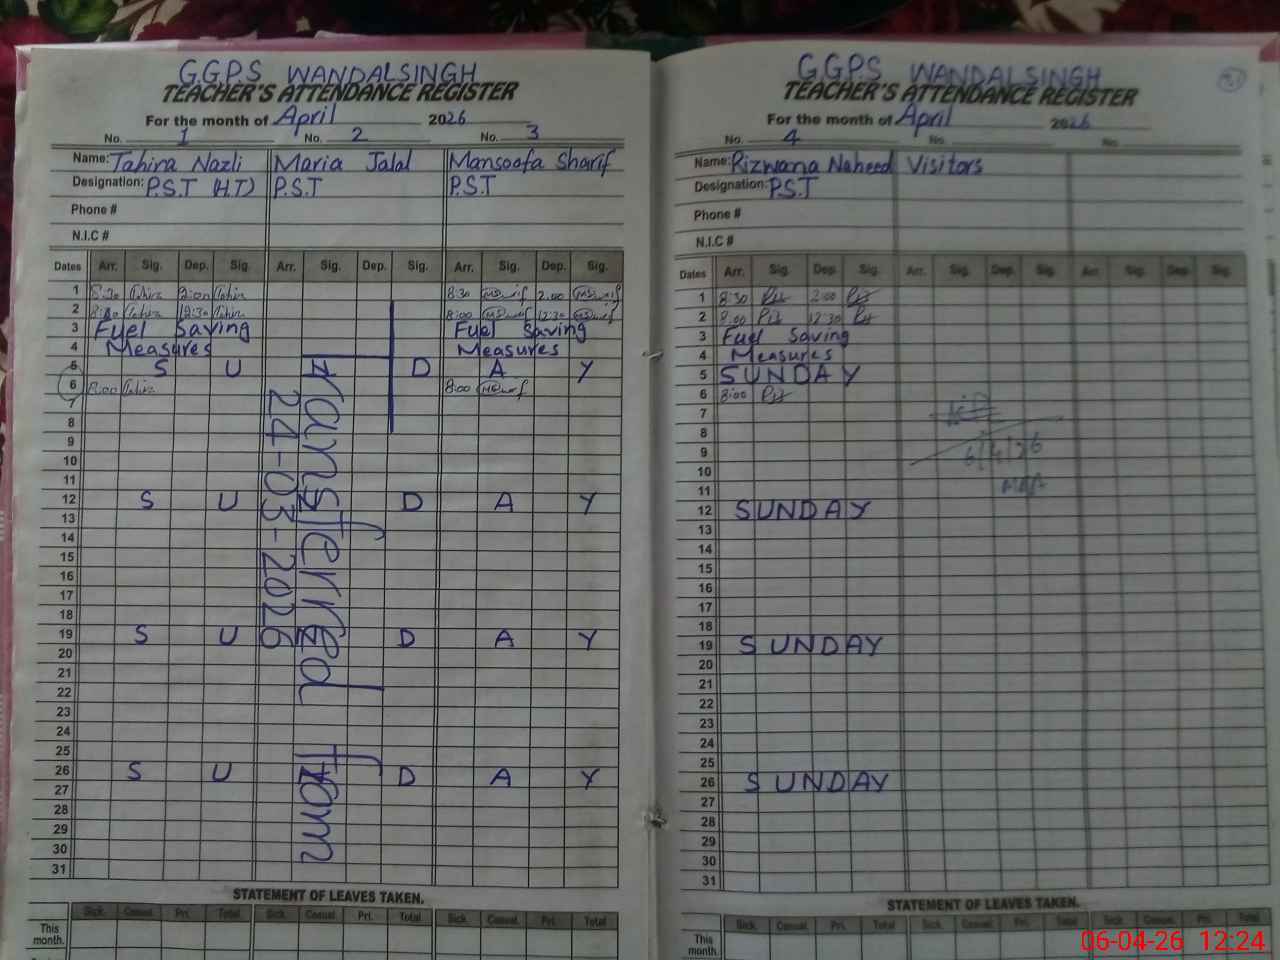 G.G.P.S WANDALSINGH
TEACHER'S ATTENDANCE REGISTER
For the month of April 2026
No. 1 No. 2 No. 3
Name: Tahira Nazli Maria Jalal Mansoofa Sharif
Designation: P.S.T (H.T) P.S.T P.S.T
Phone #
N.I.C #
Dates Arr. Sig. Dep. Sig. Arr. Sig. Dep. Sig. Arr. Sig. Dep. Sig.
1 8:30 Tahira 2:00 Tahira 8:30 2.00
2 8:00 Tahira 12:30 Tahira 8:00 12:30
3 Fuel Saving Fuel Saving
4 Measures Measures
5 S U N D A Y
6 8:00 Tahira 8:00
7
8
9
10
11
12 S U N D A Y
13
14
15
16
17
18
19 S U N D A Y
20
21
22
23
24
25
26 S U N D A Y
27
28
29
30
31
Transferred from
24-03-2026
STATEMENT OF LEAVES TAKEN.
Sick. Casual. Pri. Total Sick. Casual Pri. Total Sick. Casual. Pri. Total
This month.
G.G.P.S WANDALSINGH
TEACHER'S ATTENDANCE REGISTER
For the month of April 2026
No. 4 No. No.
Name: Rizwana Naheed Visitors
Designation: P.S.T
Phone #
N.I.C #
Dates Arr. Sig. Dep. Sig. Arr. Sig. Dep. Sig. Arr. Sig. Dep. Sig.
1 8:30 2:00
2 8:00 12:30
3 Fuel Saving
4 Measures
5 SUNDAY
6 8:00
7
8
9 6/4/26
10
11 MEA
12 SUNDAY
13
14
15
16
17
18
19 SUNDAY
20
21
22
23
24
25
26 SUNDAY
27
28
29
30
31
STATEMENT OF LEAVES TAKEN.
Sick. Casual. Pri. Total Sick. Casual. Pri. Total Sick. Casual. Pri. Total
This month.
06-04-26 12:24